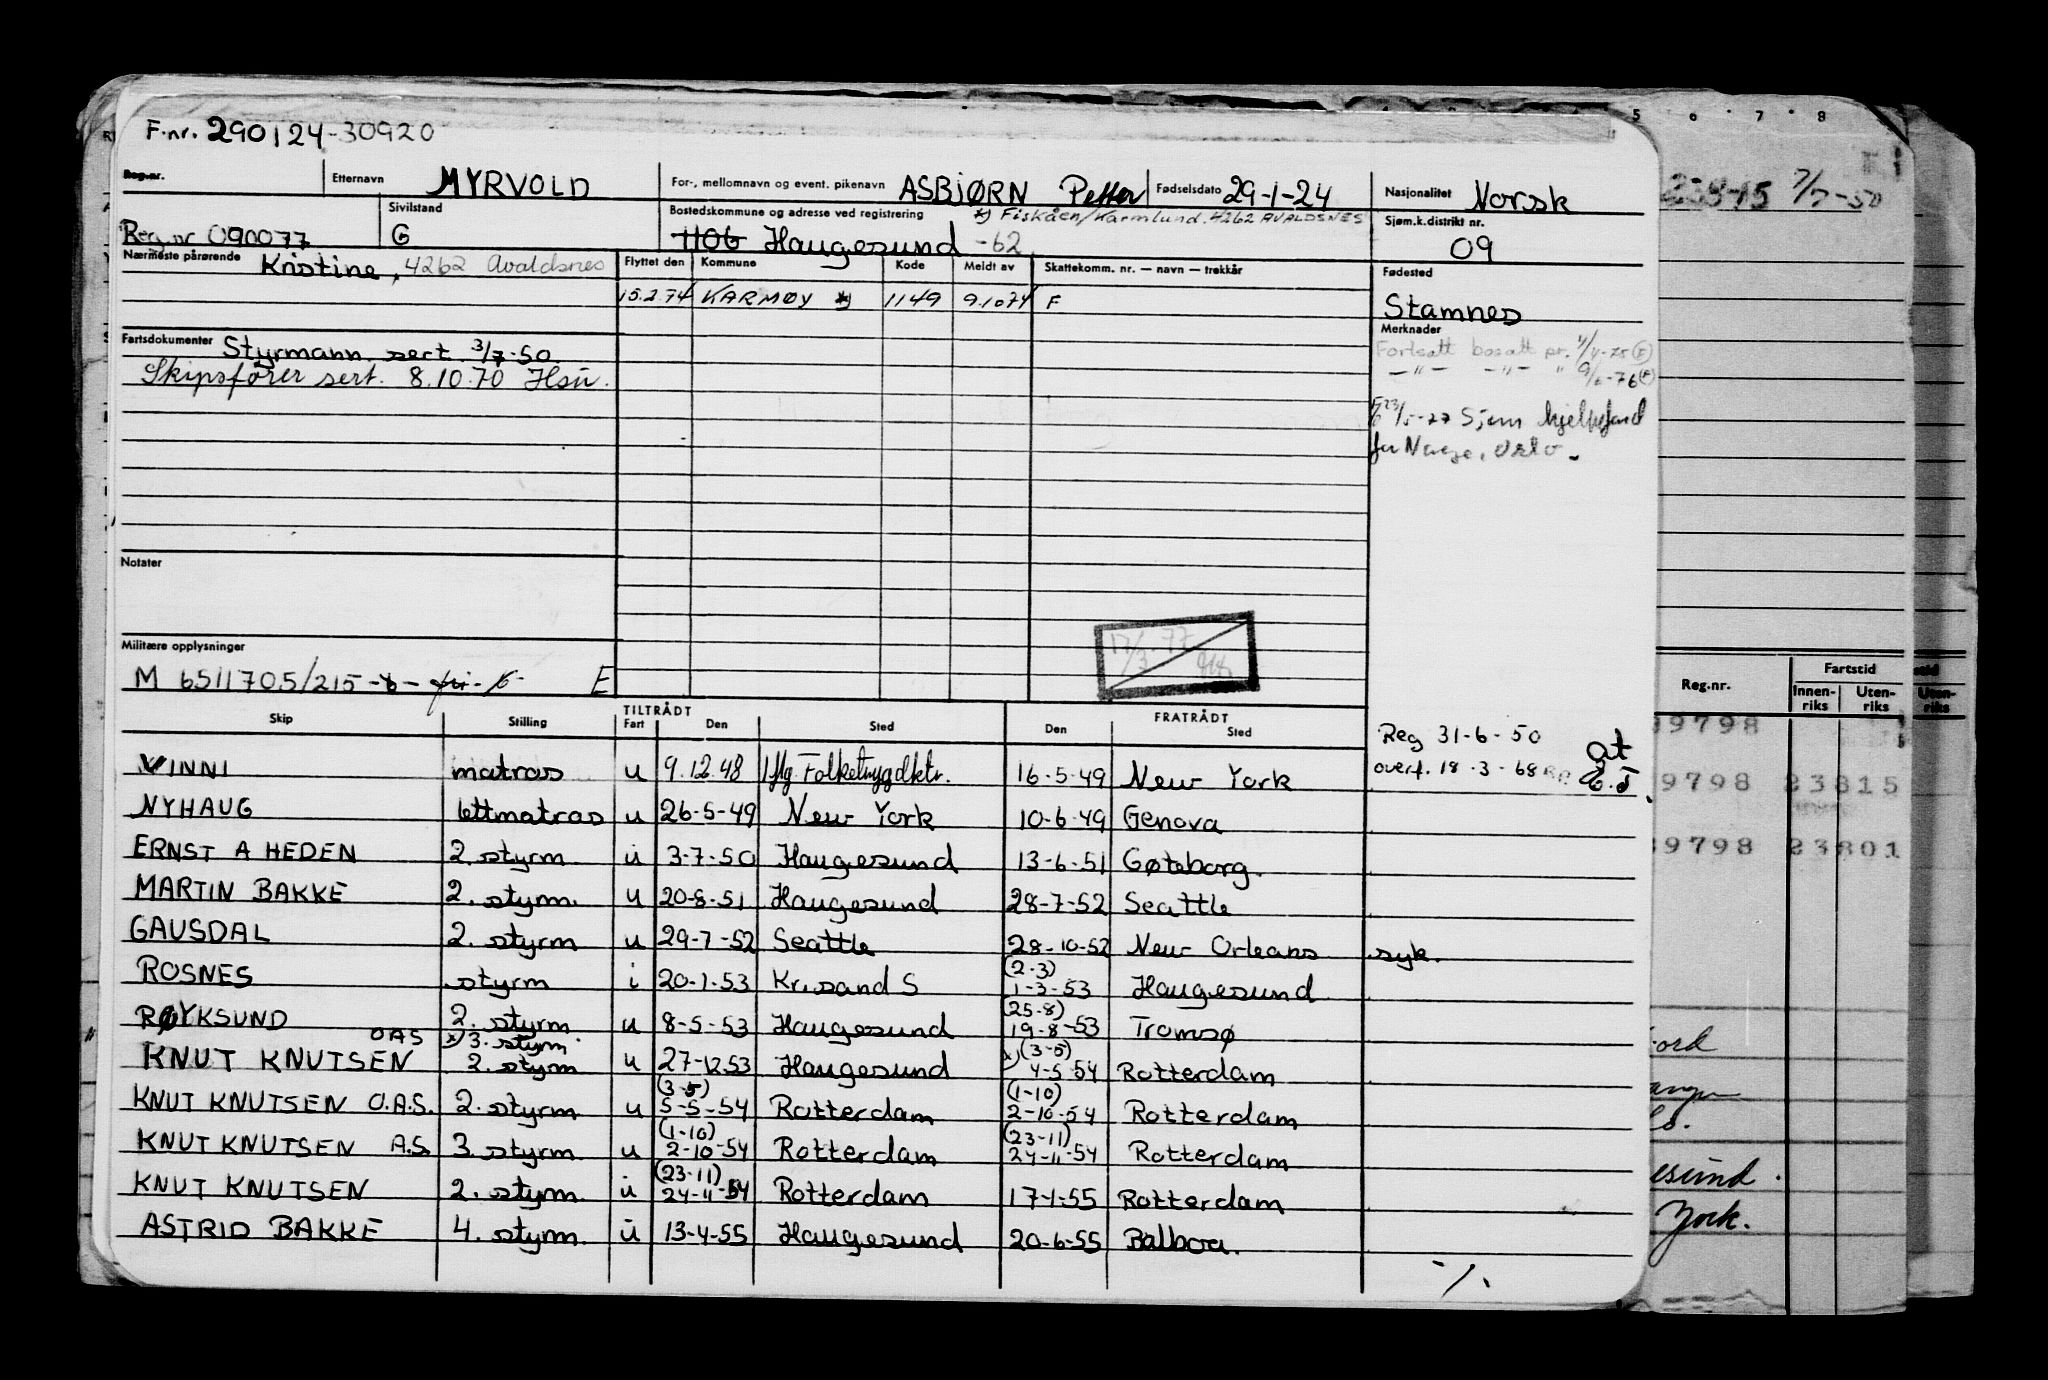 F.nr. 290124-30920
Reg.nr. Etternavn MYRVOLD For-, mellomnavn og event. pikenavn ASBJØRN Petter Fødselsdato 29-1-24 Nasjonalitet Norsk
Reg nr 090077 Sivilstand G Bostedskommune og adresse ved registrering *) Fiskåen/Karmlund. 4262 AVALDSNES Sjøm.k.distrikt nr.
1106 Haugesund -62 09
Nærmeste pårørende Kristine, 4262 Avaldsnes Flyttet den Kommune Kode Meldt av Skattekomm. nr. — navn — trekkår Fødested
15.2.74 KARMØY *) 1149 9.10.74 F Stamnes
Fartsdokumenter Styrmann sert. 3/7-50. Merknader
Skipsfører sert. 8.10.70 Hsu.
Fortsatt bosatt pr. 1/4-75 (F)
— " — — " — " 9/6-76 (F)
23/5-77 Sjøm hjelpefond
for Norge, Oslo.
Notater
17/3.77
Militære opplysninger
M 6511705/215 -b- fri- E
Skip Stilling TILTRÅDT Fart Den Sted FRATRÅDT Den Sted
Reg 31-6-50 at
overf. 18-3-68
VINNI matros u 9.12.48 Iflg. Folketrygdktr. 16-5-49 New York
NYHAUG lettmatros u 26-5-49 New York 10-6-49 Genova
ERNST A HEDEN 2. styrm u 3-7-50 Haugesund 13-6-51 Gøteborg.
MARTIN BAKKE 2. styrm. u 20-8-51 Haugesund 28-7-52 Seattle
GAUSDAL 2. styrm u 29-7-52 Seattle 28-10-52 New Orleans syk.
ROSNES styrm i 20-1-53 Kr.sand S (2-3) 1-3-53 Haugesund
RØYKSUND 2. styrm u 8-5-53 Haugesund (25-8) 19-8-53 Tromsø
KNUT KNUTSEN OAS *) 3. styrm. 2. styrm u 27-12.53 Haugesund *) (3-5) 4-5-54 Rotterdam
KNUT KNUTSEN O.A.S. 2. styrm u (3-5) 5-5-54 Rotterdam (1-10) 2-10-54 Rotterdam
KNUT KNUTSEN A.S. 3. styrm u (1-10) 2-10-54 Rotterdam (23-11) 24-11-54 Rotterdam
KNUT KNUTSEN 2. styrm u (23-11) 24-11-54 Rotterdam 17-1-55 Rotterdam
ASTRID BAKKE 4. styrm. u 13-4-55 Haugesund 20-6-55 Balboa.
./.
5 6 7 8
7/7-50
Reg.nr. Fartstid
Innen-riks Uten-riks
9798
9798 23815
9798 23801
York.